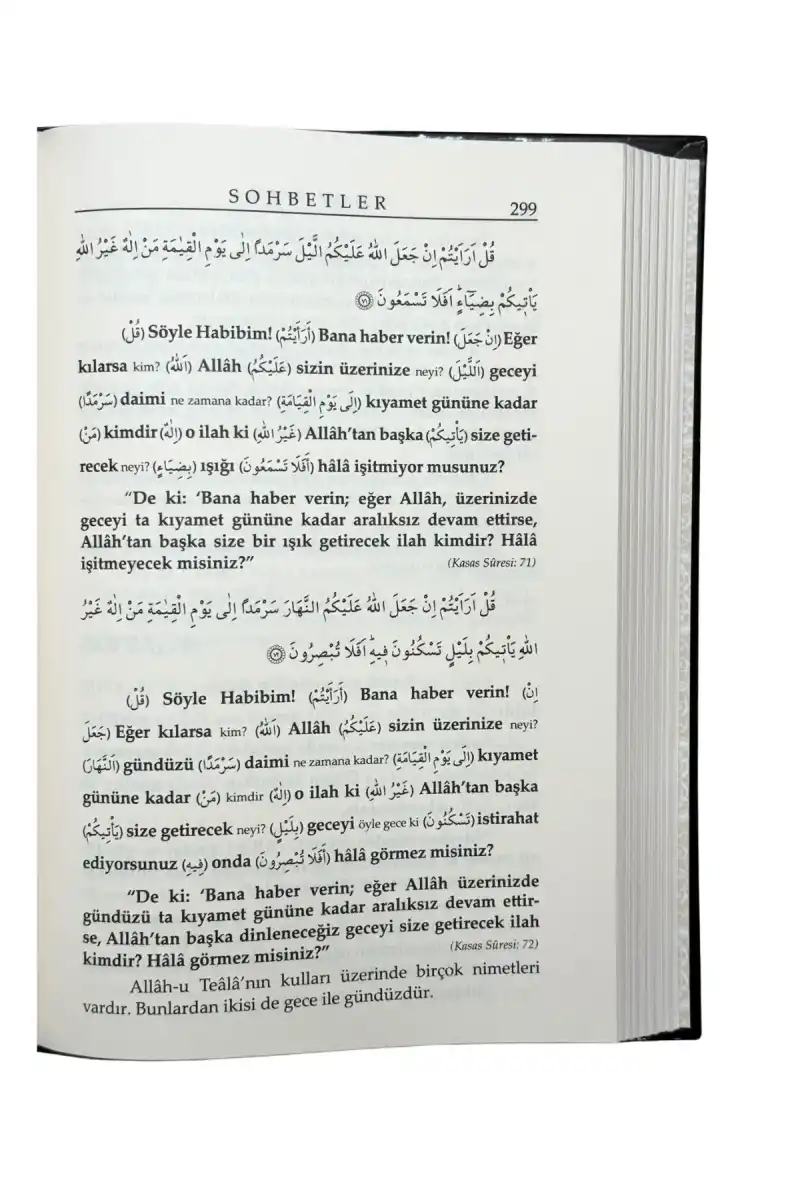 SOHBETLER
299
قُلْ اَرَاَيْتُمْ اِنْ جَعَلَ اللهُ عَلَيْكُمُ الَّيْلَ سَرْمَدًا اِلٰى يَوْمِ الْقِيٰمَةِ مَنْ اِلٰهٌ غَيْرُ اللهِ
يَأْتِيكُمْ بِضِيَآءٍ اَفَلَا تَسْمَعُونَ ﴿٧١﴾
(قُلْ) Söyle Habibim! (أَرَأَيْتُمْ) Bana haber verin! (إِنْ جَعَلَ) Eğer
kılarsa kim? (اَللهُ) Allâh (عَلَيْكُمُ) sizin üzerinize neyi? (اَللَّيْلَ) geceyi
(سَرْمَدًا) daimi ne zamana kadar? (إِلَى يَوْمِ الْقِيَامَةِ) kıyamet gününe kadar
(مَنْ) kimdir (إِلٰهٌ) o ilah ki (غَيْرُ اللهِ) Allâh'tan başka (يَأْتِيكُمْ) size geti-
recek neyi? (بِضِيَاءٍ) ışığı (أَفَلَا تَسْمَعُونَ) hâlâ işitmiyor musunuz?
"De ki: 'Bana haber verin; eğer Allâh, üzerinizde
geceyi ta kıyamet gününe kadar aralıksız devam ettirse,
Allâh'tan başka size bir ışık getirecek ilah kimdir? Hâlâ
işitmeyecek misiniz?" (Kasas Sûresi: 71)
قُلْ اَرَاَيْتُمْ اِنْ جَعَلَ اللهُ عَلَيْكُمُ النَّهَارَ سَرْمَدًا اِلٰى يَوْمِ الْقِيٰمَةِ مَنْ اِلٰهٌ غَيْرُ
اللهِ يَأْتِيكُمْ بِلَيْلٍ تَسْكُنُونَ فِيهِ اَفَلَا تُبْصِرُونَ ﴿٧٢﴾
(قُلْ) Söyle Habibim! (أَرَأَيْتُمْ) Bana haber verin! (إِنْ
جَعَلَ) Eğer kılarsa kim? (اَللهُ) Allâh (عَلَيْكُمُ) sizin üzerinize neyi?
(اَلنَّهَارَ) gündüzü (سَرْمَدًا) daimi ne zamana kadar? (إِلَى يَوْمِ الْقِيَامَةِ) kıyamet
gününe kadar (مَنْ) kimdir (إِلٰهٌ) o ilah ki (غَيْرُ اللهِ) Allâh'tan başka
(يَأْتِيكُمْ) size getirecek neyi? (بِلَيْلٍ) geceyi öyle gece ki (تَسْكُنُونَ) istirahat
ediyorsunuz (فِيهِ) onda (أَفَلَا تُبْصِرُونَ) hâlâ görmez misiniz?
"De ki: 'Bana haber verin; eğer Allâh üzerinizde
gündüzü ta kıyamet gününe kadar aralıksız devam ettir-
se, Allâh'tan başka dinleneceğiz geceyi size getirecek ilah
kimdir? Hâlâ görmez misiniz?" (Kasas Sûresi: 72)
Allâh-u Teâlâ'nın kulları üzerinde birçok nimetleri
vardır. Bunlardan ikisi de gece ile gündüzdür.